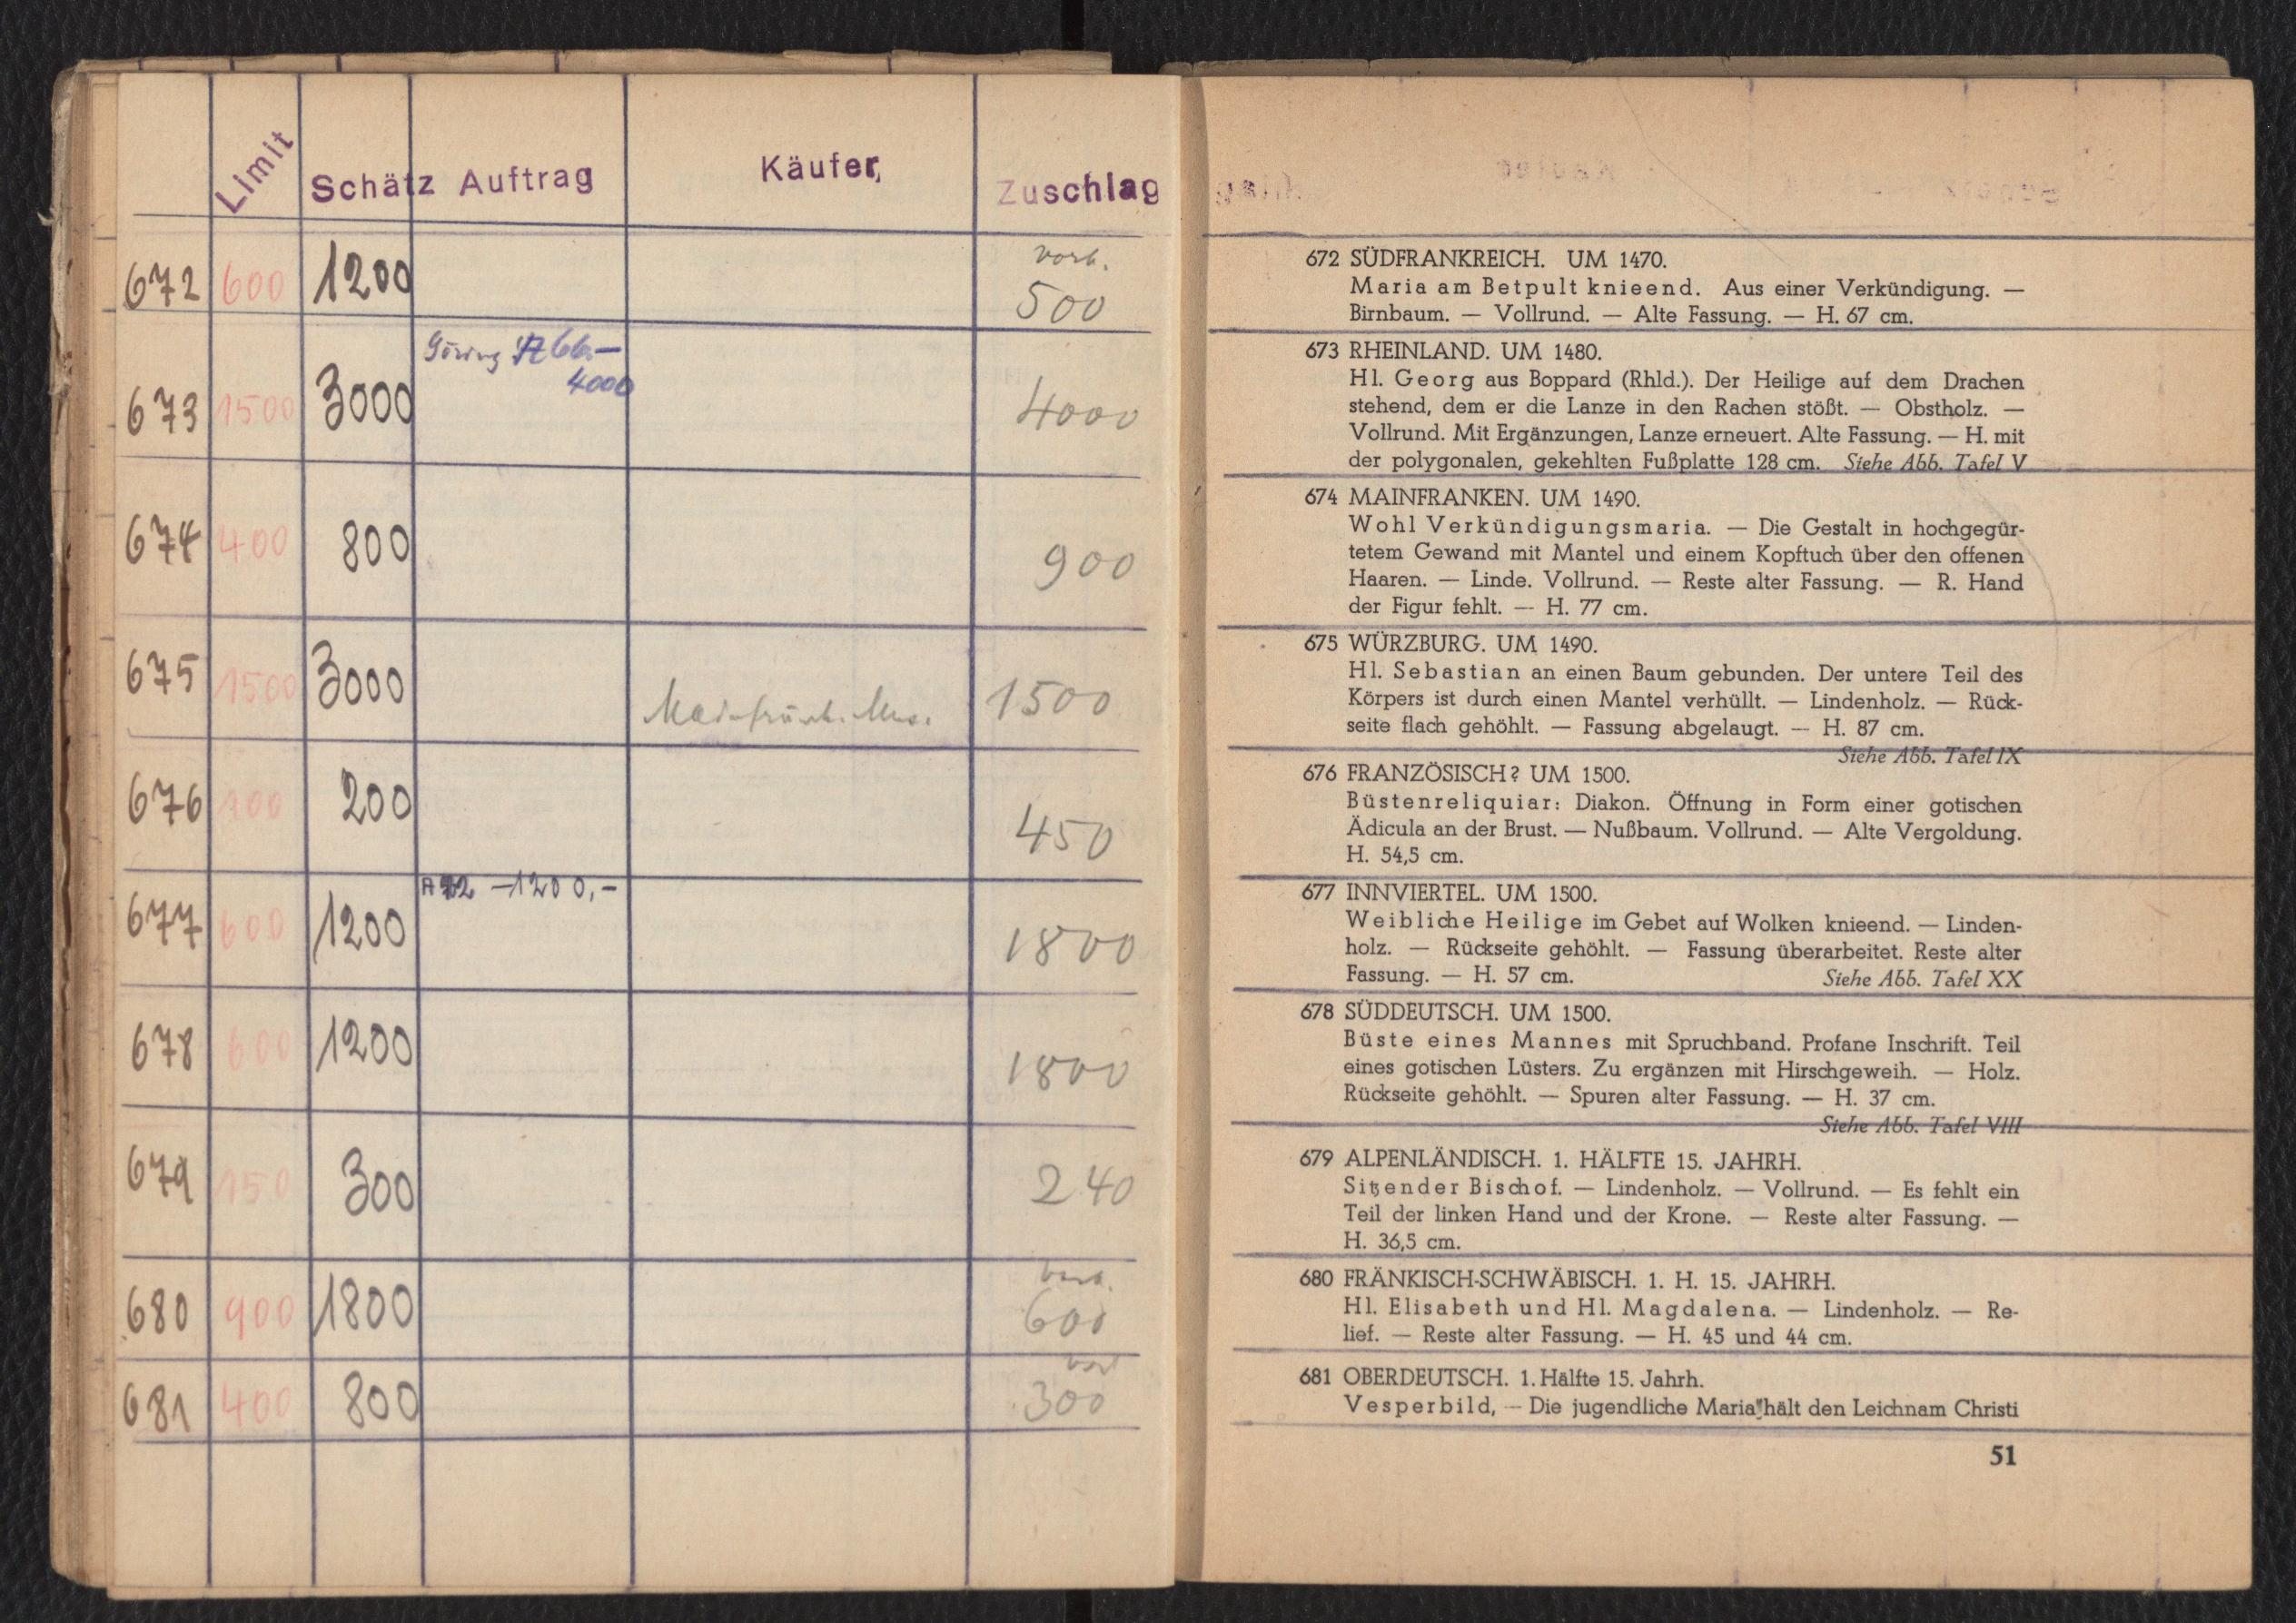 Limit Schätz Auftrag Käufer, Zuschlag
672 600 1200 vorb. 500
Göring A 66.–
4000
673 1500 3000 4000
674 400 800 900
675 1500 3000 Mainfränk. Mus. 1500
676 100 200 450
A 92 – 1200,–
677 600 1200 1800
678 600 1200 1800
679 150 300 240
680 900 1800 vorb. 600
681 400 800 300
672 SÜDFRANKREICH. UM 1470.
Maria am Betpult knieend. Aus einer Verkündigung. —
Birnbaum. — Vollrund. — Alte Fassung. — H. 67 cm.
673 RHEINLAND. UM 1480.
Hl. Georg aus Boppard (Rhld.). Der Heilige auf dem Drachen
stehend, dem er die Lanze in den Rachen stößt. — Obstholz. —
Vollrund. Mit Ergänzungen, Lanze erneuert. Alte Fassung. — H. mit
der polygonalen, gekehlten Fußplatte 128 cm. Siehe Abb. Tafel V
674 MAINFRANKEN. UM 1490.
Wohl Verkündigungsmaria. — Die Gestalt in hochgegür-
tetem Gewand mit Mantel und einem Kopftuch über den offenen
Haaren. — Linde. Vollrund. — Reste alter Fassung. — R. Hand
der Figur fehlt. — H. 77 cm.
675 WÜRZBURG. UM 1490.
Hl. Sebastian an einen Baum gebunden. Der untere Teil des
Körpers ist durch einen Mantel verhüllt. — Lindenholz. — Rück-
seite flach gehöhlt. — Fassung abgelaugt. — H. 87 cm.
Siehe Abb. Tafel IX
676 FRANZÖSISCH? UM 1500.
Büstenreliquiar: Diakon. Öffnung in Form einer gotischen
Ädicula an der Brust. — Nußbaum. Vollrund. — Alte Vergoldung.
H. 54,5 cm.
677 INNVIERTEL. UM 1500.
Weibliche Heilige im Gebet auf Wolken knieend. — Linden-
holz. — Rückseite gehöhlt. — Fassung überarbeitet. Reste alter
Fassung. — H. 57 cm. Siehe Abb. Tafel XX
678 SÜDDEUTSCH. UM 1500.
Büste eines Mannes mit Spruchband. Profane Inschrift. Teil
eines gotischen Lüsters. Zu ergänzen mit Hirschgeweih. — Holz.
Rückseite gehöhlt. — Spuren alter Fassung. — H. 37 cm.
Siehe Abb. Tafel VIII
679 ALPENLÄNDISCH. 1. HÄLFTE 15. JAHRH.
Sitzender Bischof. — Lindenholz. — Vollrund. — Es fehlt ein
Teil der linken Hand und der Krone. — Reste alter Fassung. —
H. 36,5 cm.
680 FRÄNKISCH-SCHWÄBISCH. 1. H. 15. JAHRH.
Hl. Elisabeth und Hl. Magdalena. — Lindenholz. — Re-
lief. — Reste alter Fassung. — H. 45 und 44 cm.
681 OBERDEUTSCH. 1. Hälfte 15. Jahrh.
Vesperbild, — Die jugendliche Maria hält den Leichnam Christi
51